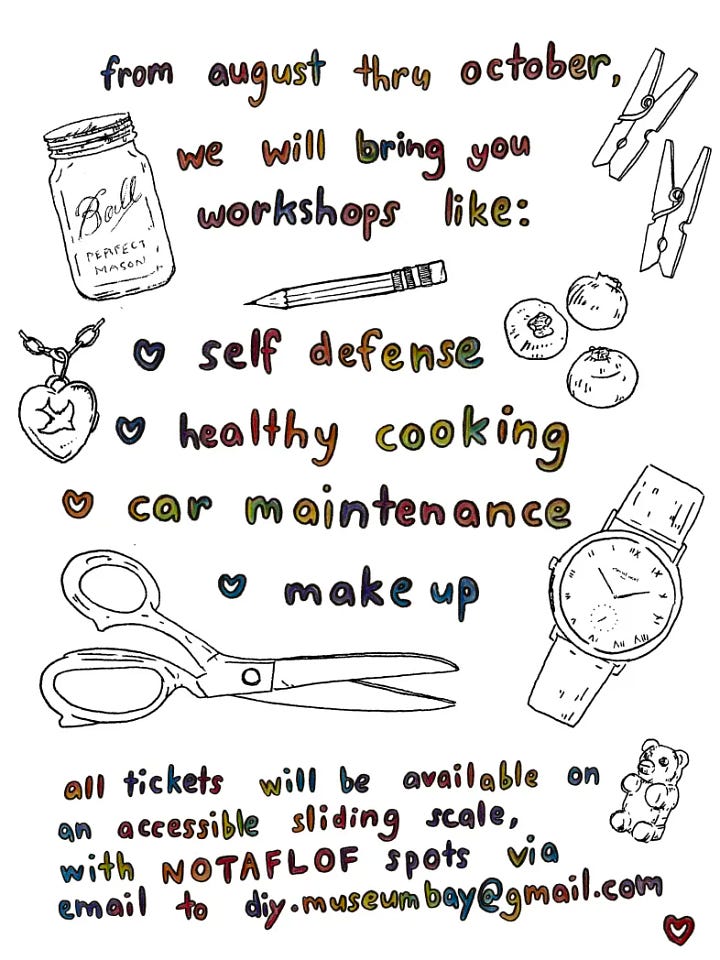 from august thru october,
we will bring you
workshops like:
Ball
PERFECT
MASON
self defense
healthy cooking
car maintenance
make up
all tickets will be available on
an accessible sliding scale,
with NOTAFLOF spots via
email to diy.museumbay@gmail.com